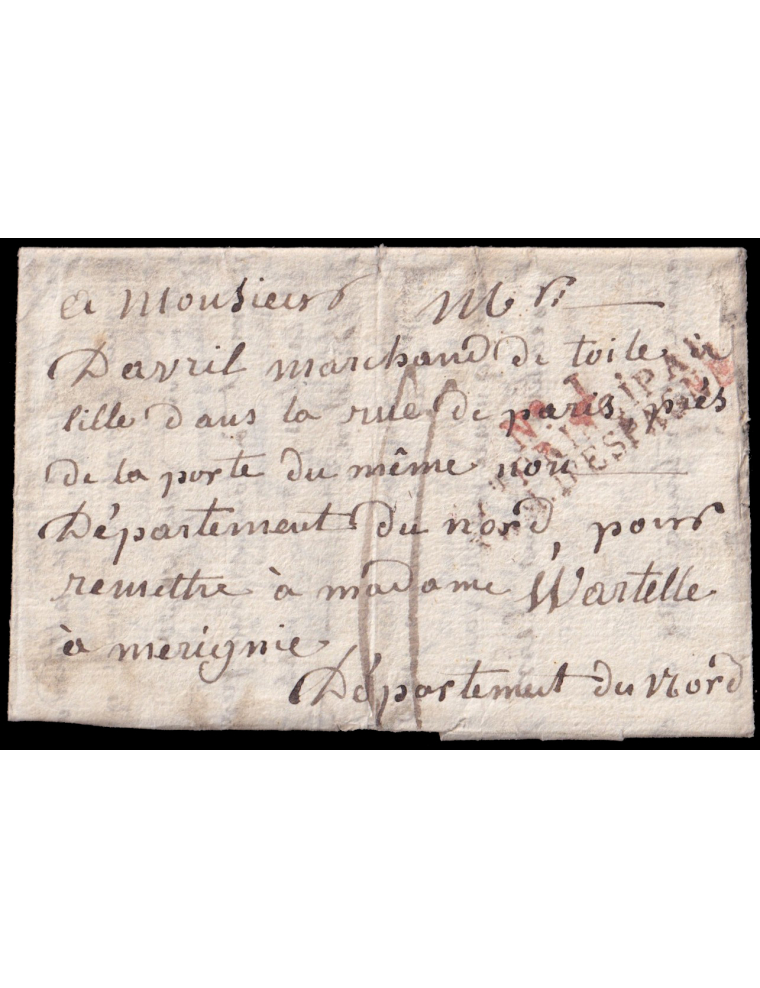 a Monsieur Mr
Davril marchand de toile à
lille dans la rue de paris, près
de la porte du même nou
Département du nord, pour
remettre à madame Wartelle
à merignie
Département du Nord
No. 1
PRINCIPAL
D'ESPAGNE
11